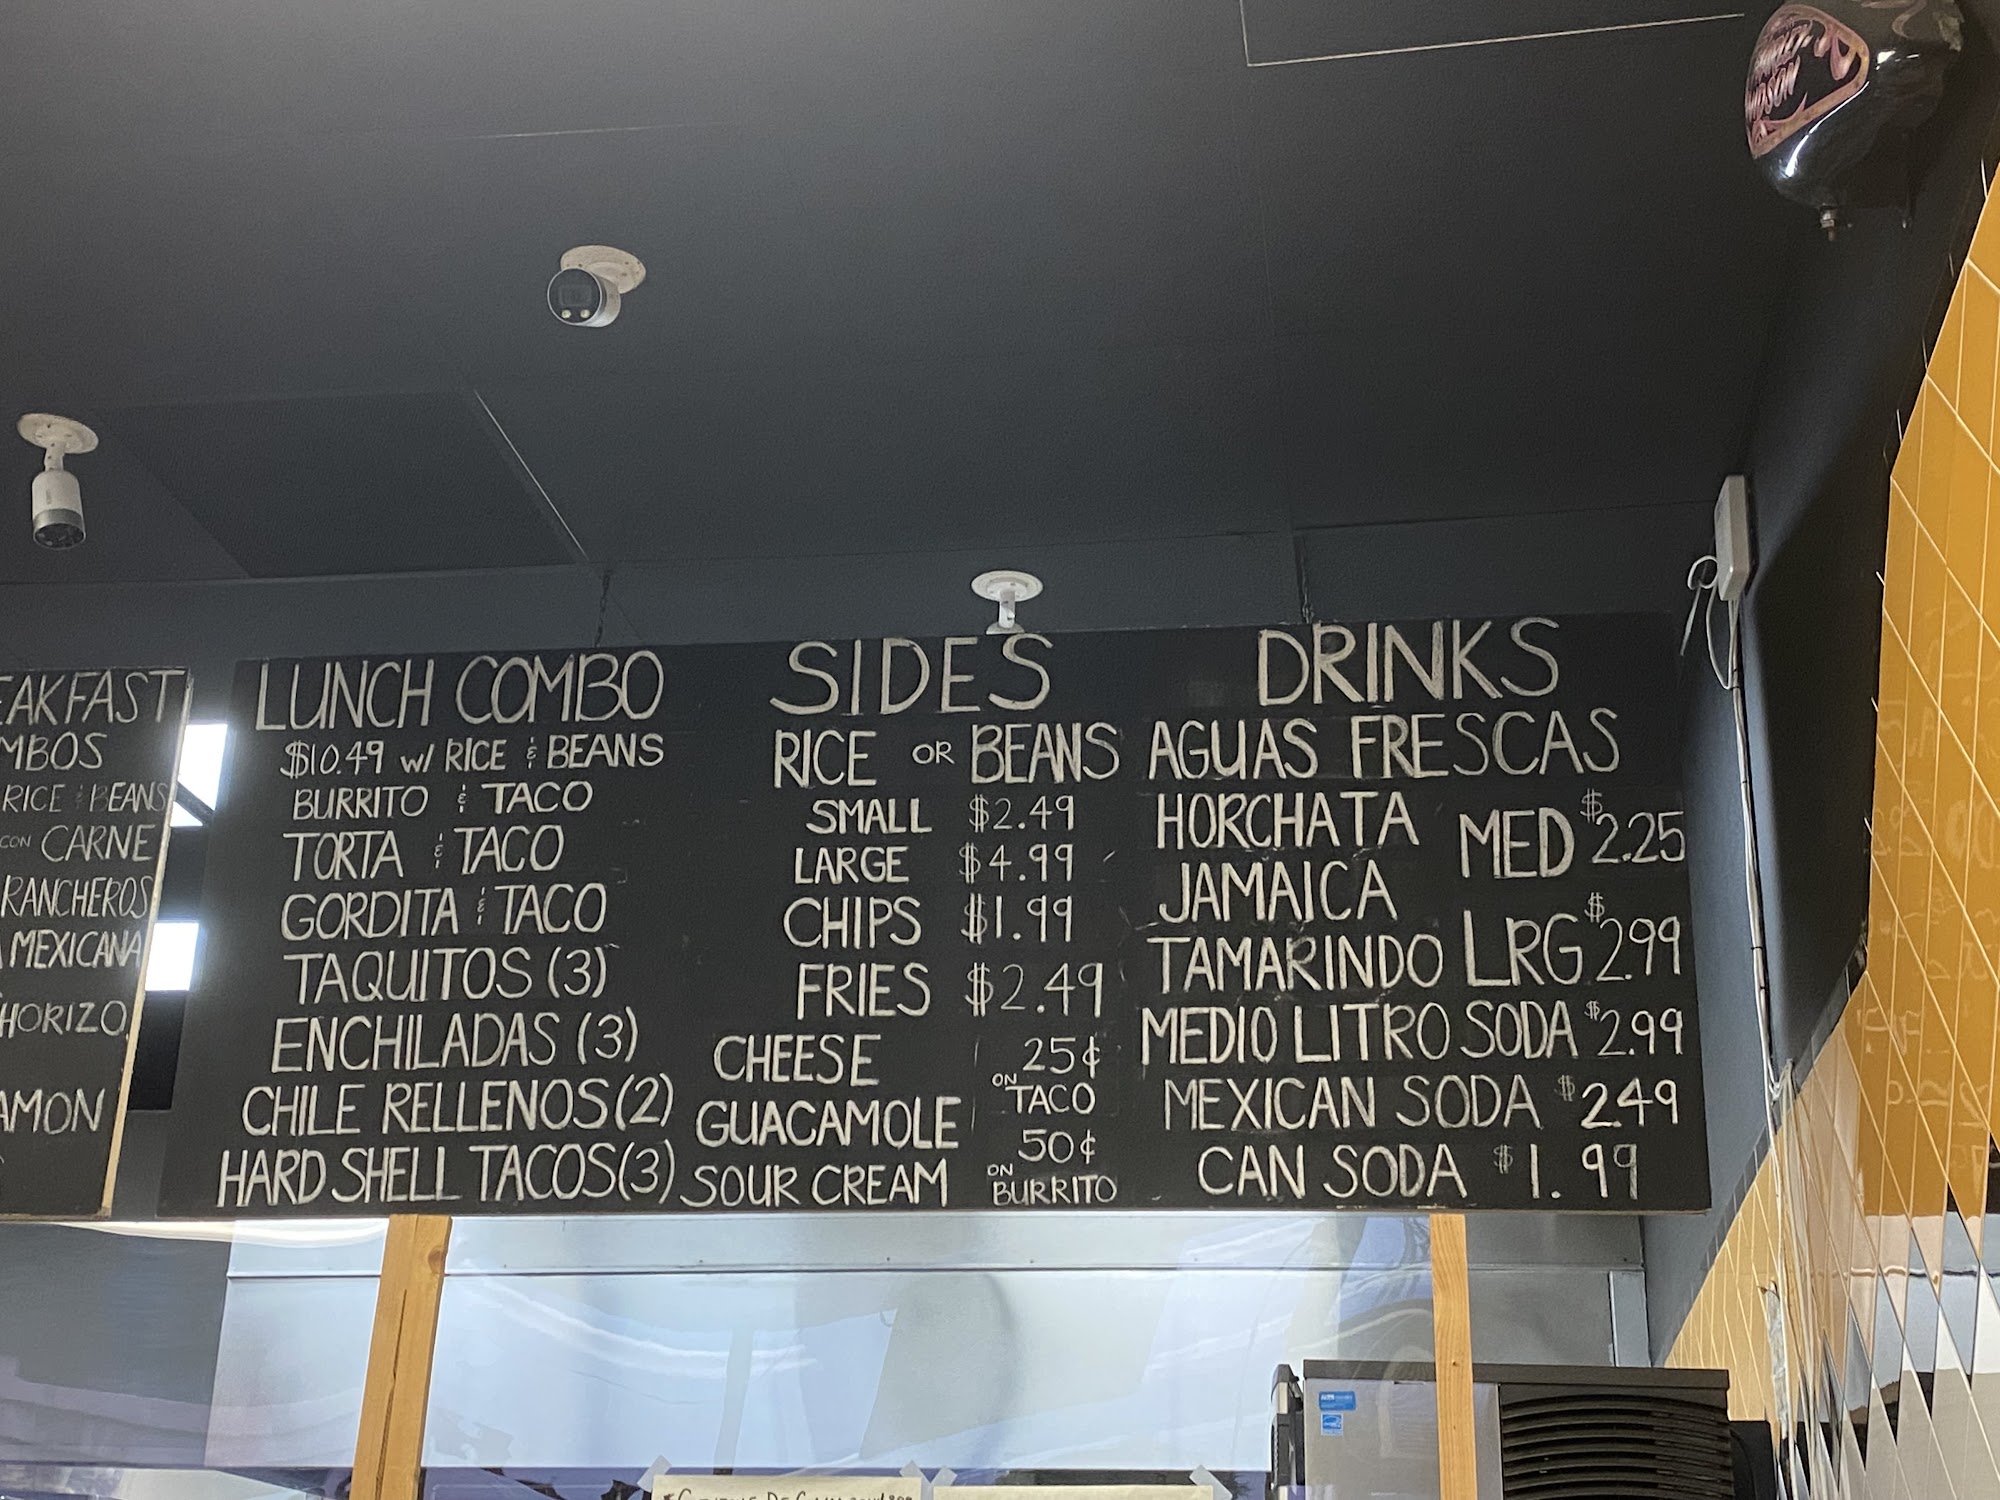 EAKFAST
MBOS
RICE & BEANS
CON CARNE
RANCHEROS
MEXICANA
HORIZO
AMON
LUNCH COMBO
$10.49 w/ RICE & BEANS
BURRITO & TACO
TORTA & TACO
GORDITA & TACO
TAQUITOS (3)
ENCHILADAS (3)
CHILE RELLENOS (2)
HARD SHELL TACOS (3)
SIDES
RICE OR BEANS
SMALL $2.49
LARGE $4.99
CHIPS $1.99
FRIES $2.49
CHEESE
GUACAMOLE
SOUR CREAM
25¢
ON TACO
50¢
ON BURRITO
DRINKS
AGUAS FRESCAS
HORCHATA
JAMAICA
TAMARINDO
MED $2.25
LRG $2.99
MEDIO LITRO SODA $2.99
MEXICAN SODA $2.49
CAN SODA $1.99